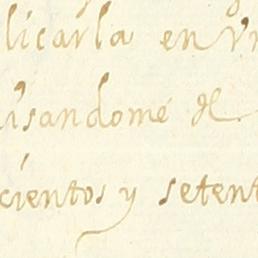 licarla en vn
isandomé de
cientos y setent